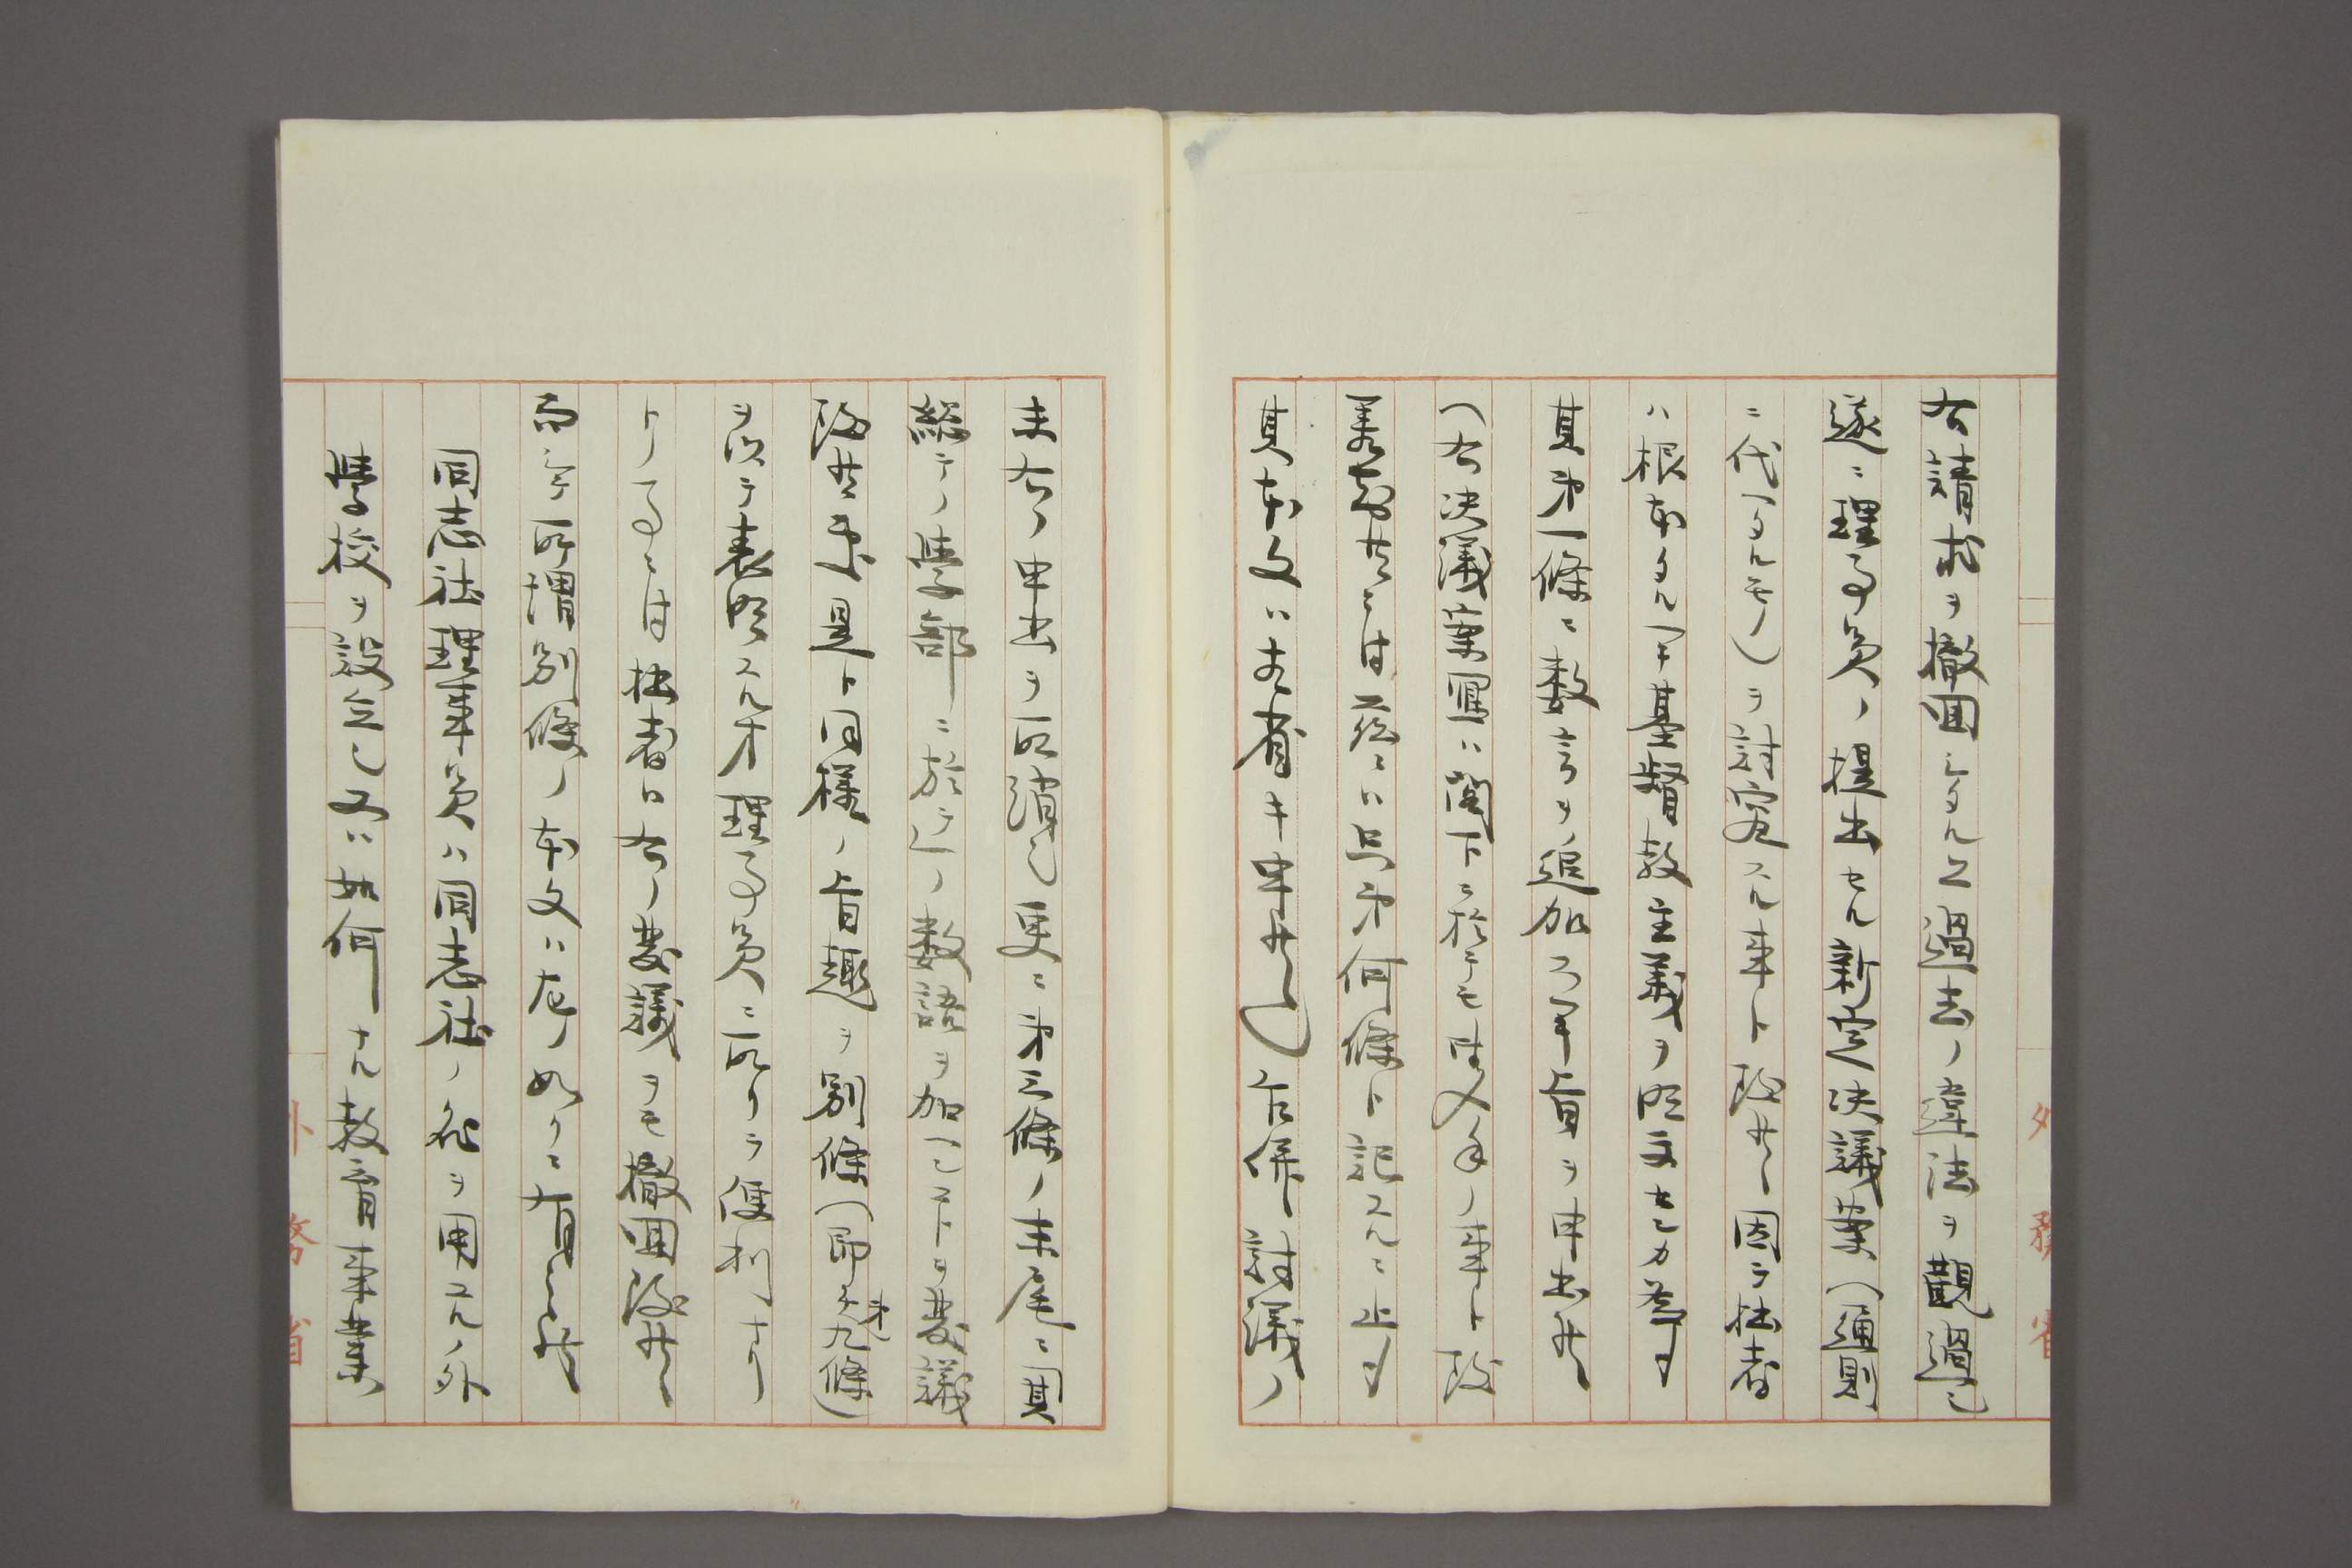 右請求ヲ撤回シタル上過去ノ違法ヲ觀過シ
遂ニ理事員ノ提出セル新定決議案（通則
ニ代フルモノ）ヲ討究スル事ト致候因テ拙者
ハ根本タル可キ基督教主義ヲ明文セシカ為メ
其第一條ニ数言ヲ追加ス可キ旨ヲ申出候
（右決議案寫ハ閣下ニ於テモ御入手ノ事ト致
其本文ハ相省キ申候）右併討議ノ
末右ノ申出ヲ取消シ更ニ第三條ノ末尾ニ其
総テノ学部ニ於テノ数語ヲ加ヘンコトヲ発議
致候処是ト同様ノ旨趣ヲ別條（即チ第九條）
ヲ以テ表明スル方理事員ニ取リテ便利ナリ
トノ事ニ付拙者ハ右ノ発議ヲモ撤回致候
而シテ所謂別條ノ本文ハ左ノ如クニ有之候
同志社理事員ハ同志社ノ名ヲ用スルノ外
学校ヲ設立シ又ハ如何ナル教育事業
外務省
外務省